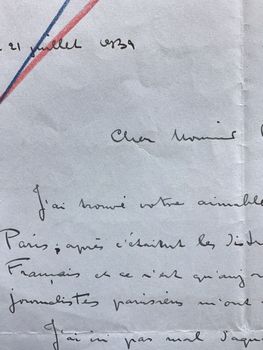 21 juillet 1939
Cher Monsieur
J'ai trouvé votre aimable
Paris; après c'étaient les
Français et ce n'est qu'auj
journalistes parisiens m'ont
J'ai ici pas mal